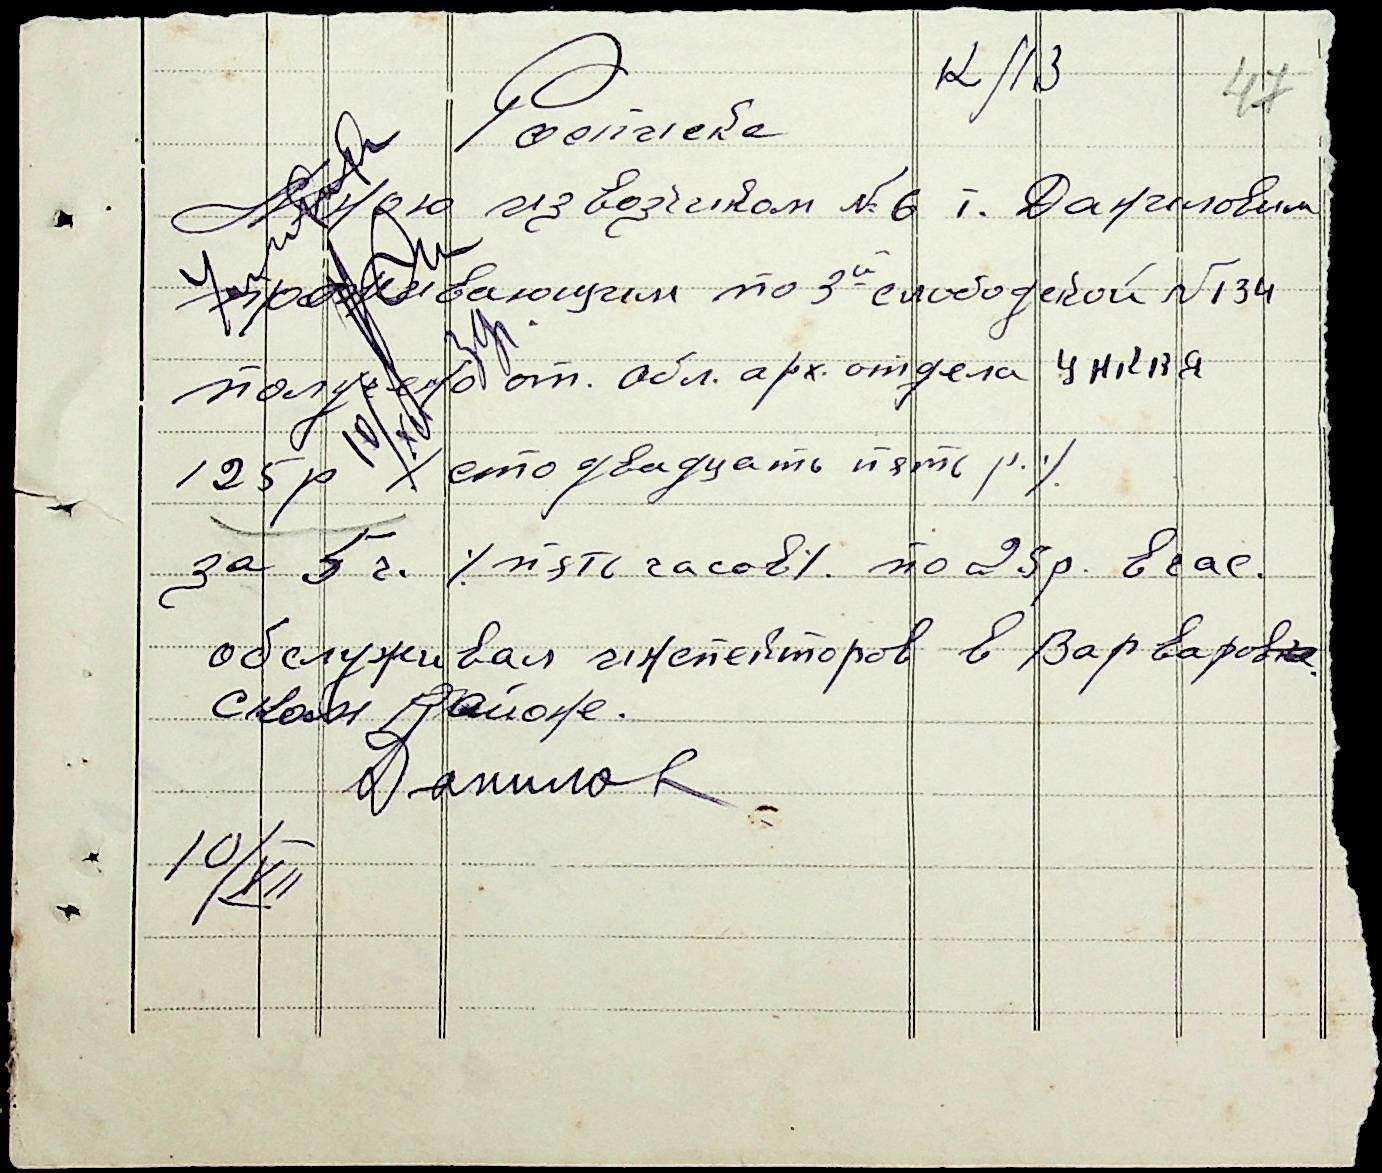 К/13
47
Росписка
Мною извозчиком №6 т. Даниловим
проживающим по 3й слободской №134
получено от. Обл. арх. отдела
125р ⁒ сто двадцать пять р.⁒
за 5 ч. ⁒ пять часов⁒. по 25р. в час.
обслуживал инспекторов в Варваров
ском районе.
Данилов
10/XII
10/XII 39г.